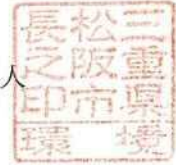 三重県
松阪市
長之印
環境
人